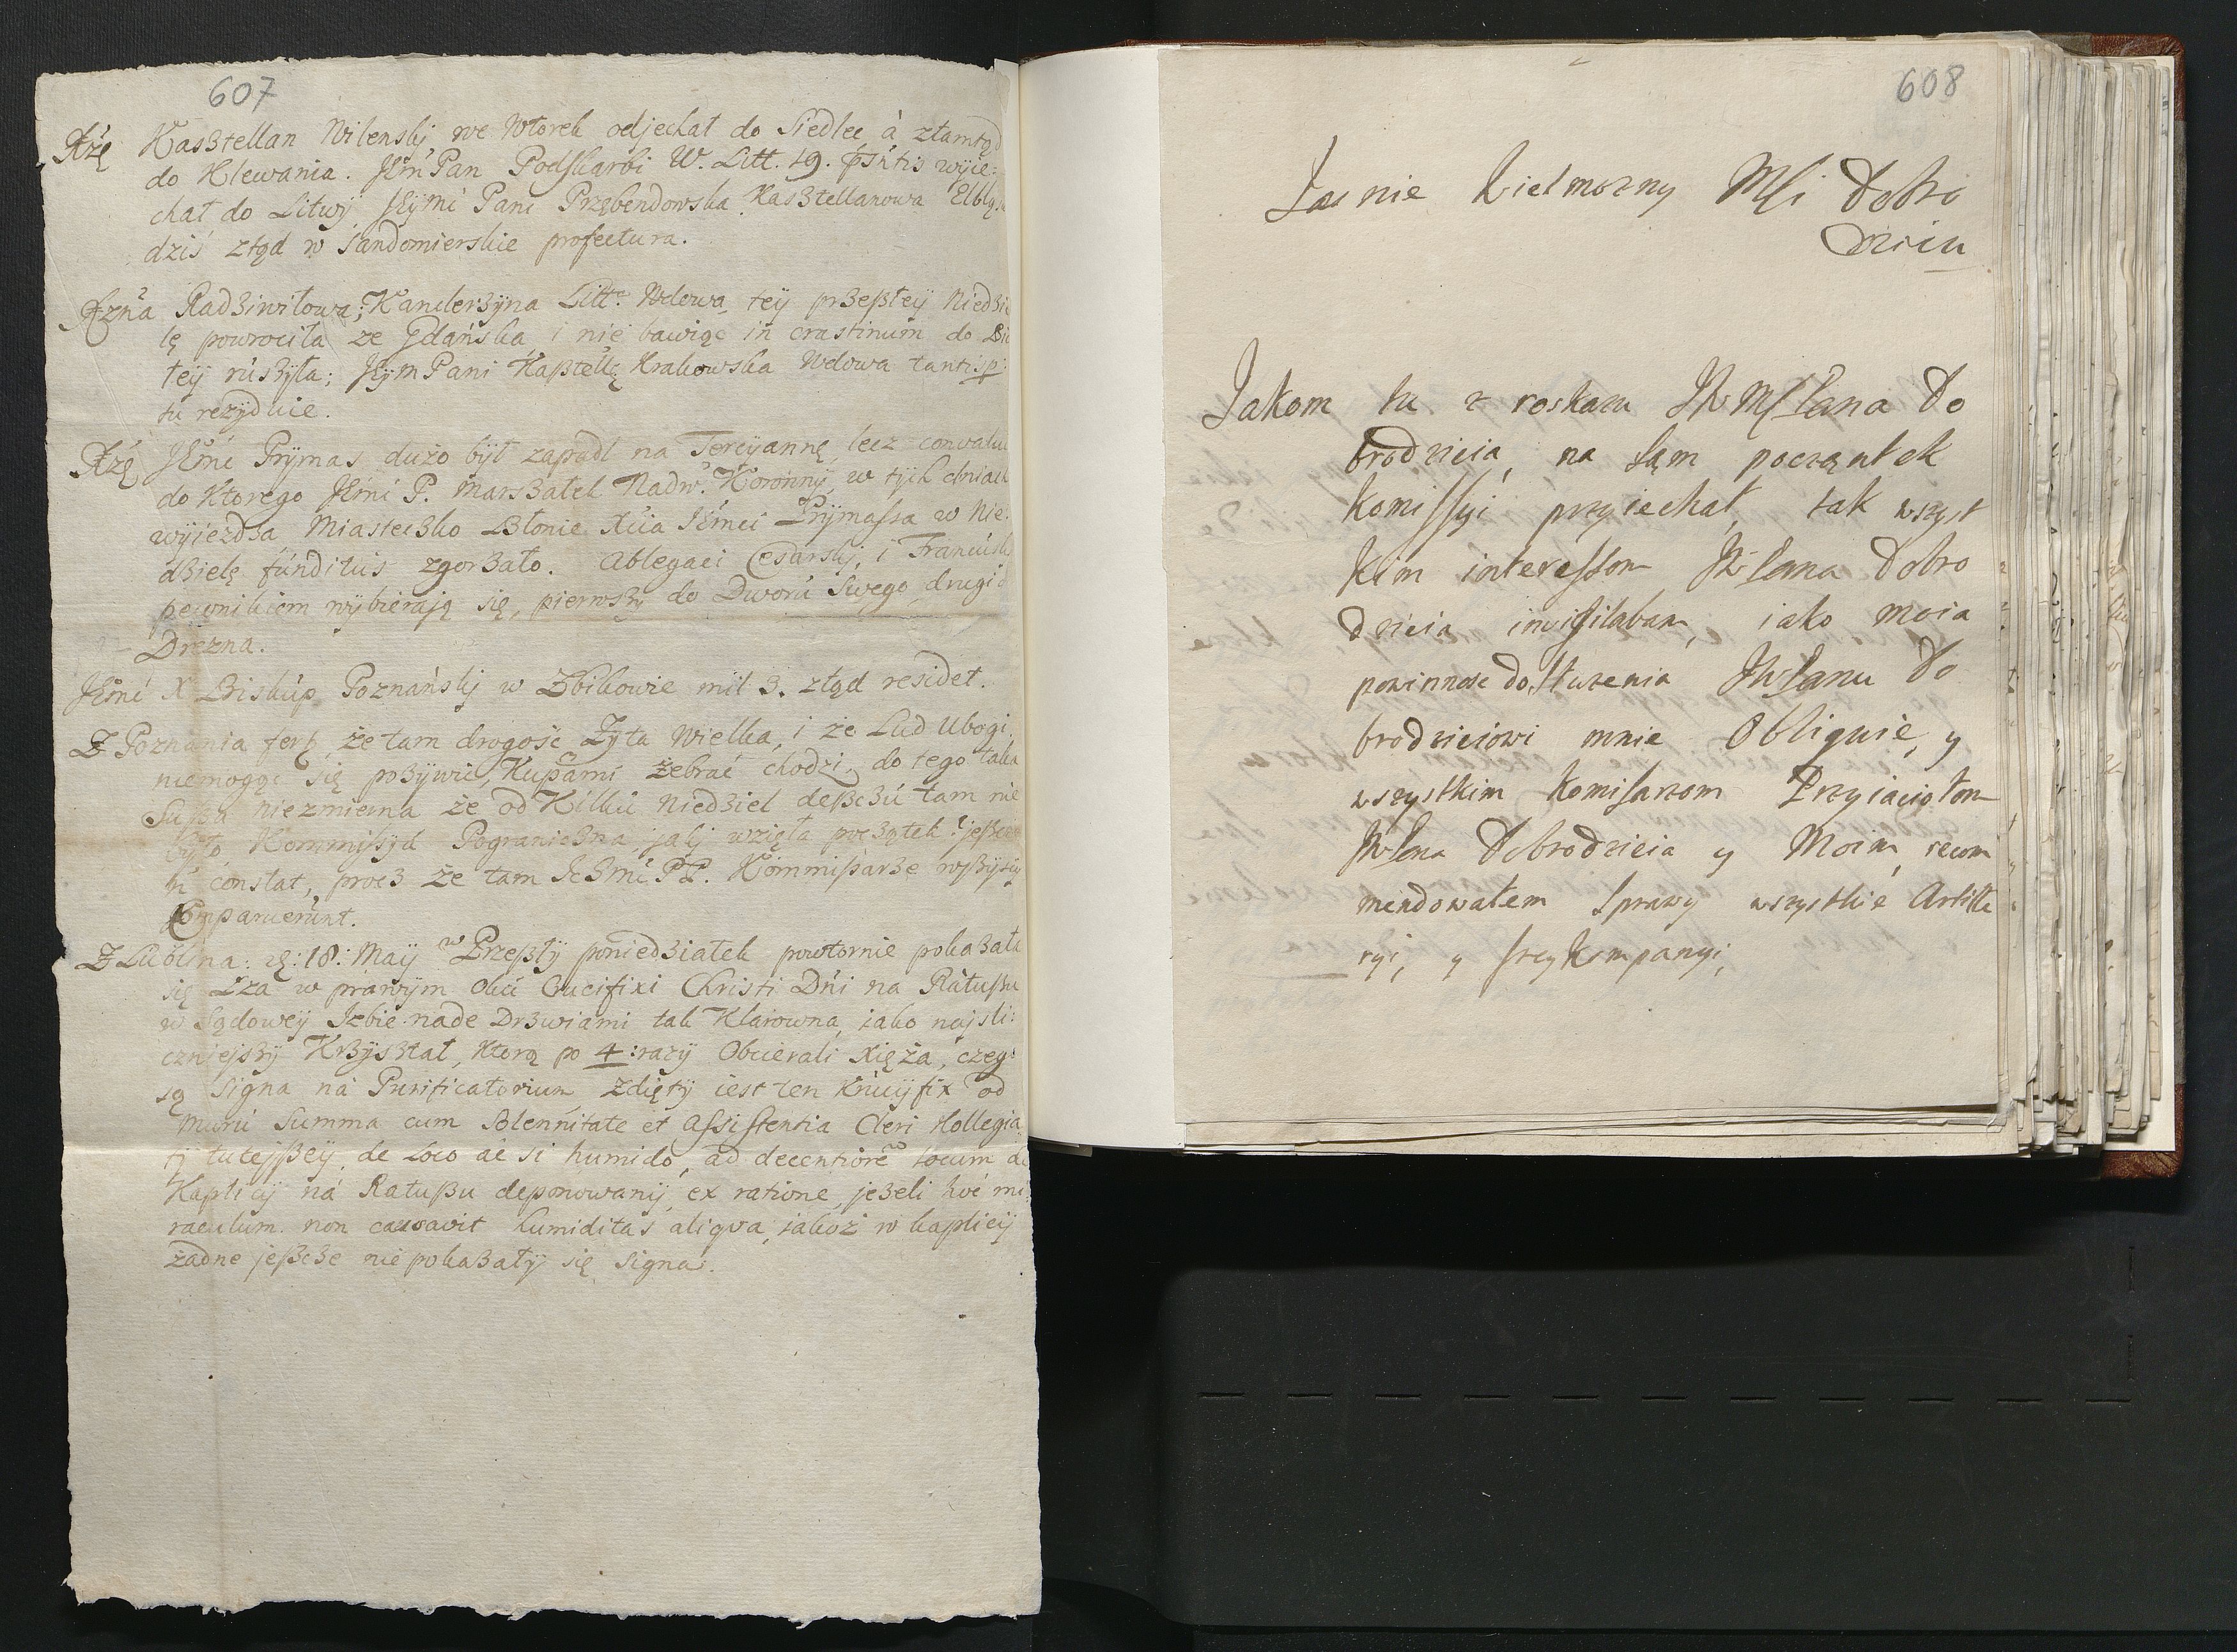 607
Xżę Kasztellan Wilenskj, we Wtorek odjechał do Siedlec, à ztamtąd
do Klewania. JEm Pan Podskarbi W. Litt. 19. psntis wyie:
chał do Litwy JEymć Pani Przębendowska Kasztellanowa Elbląs
dziś ztąd w sandomierskie profectura.
Xżna Radziwiłowa, Kanclerzyna Litt. Wdowa tey przeszłey Niedzie
lę powrociła ze Gdańska i nie bawiąc in crastinum do
łey ruszyła; JEym Pani Kasztellą Krakowska Wdowa tantisp:
tu rezyduie.
Xżę JEmć Prymas dużo był zapadł na Tercyannę, lecz
do Ktorego JEmć P. Marszałek Nadw. Koronny, w tych dniach
wyiezdza Miasteczko Błonie Xcia JEmci Prymassa w Nie:
dzielę funditus zgorzało. Ablegaci Cesarskj, i Francusk
pewnikiem wybierają się, pierwszy do Dworu Swego drugi d
Drezna.
JEmć X Biskup Poznańskj w Zbikowie mil 3. ztąd residet.
Z Poznania ferą że tam drogość Zyta Wielka, i że Lud Ubogi
niemogąc się pożywić, Kupami żebrać chodzi, do tego taka
Susza niezmierna że od Kilku Niedziel deszczu tam nie
było, Kommissyd Pograniczna, jakj wzięła początek? jeszcze
ń constat, procz że tam JchMć PP. Kommissarze wszyscy
Comparuerunt.
Z Lublina: 18: Maij w Przeszły poniedziałek powtornie pokazała
się Łza w prawym oku Crucifixi Christi Dni na Ratuszu
w Sądowey Izbie nade Drzwiami tak Klarowna, iako najśli:
czniejszy Krzyształ, Ktorą po 4: razy Obcierali Xięża, czeg:
są Signa na Purificatorium Zdięty iest ten Krucyfix od
Muru Summa cum Solennitate et assistentia Cleri Kollegia
ty tuteyszey, de Loco ac si humido, ad decentiorē locum do
Kaplicy na Ratuszu deponowany, ex ratione, jeżeli hoc mi:
raculum non causavit humiditas aliqva, iakoż w kaplicy
żadne jeszcze nie pokazały się Signa.
608
Jasnie Wielmozny Mći Dobro
dzieiu
Jakom tu z roskazu JWMsPana Do
brodzieia, na sąm początek
Komissyi przyiechał, tak wszyst
kim interessom JWPana Dobro
dzieia invigilabam, iako moia
powinnosc do słuzenia JWPanu Do
brodzieiowi mnie Obliguie, y
wszystkim Komisarzom Przyiaciołom
JWPana Dobrodzieia y Moim, recom
mendowałem Sprawy wszystkie Artille
ryi, y frey Kompanyi,